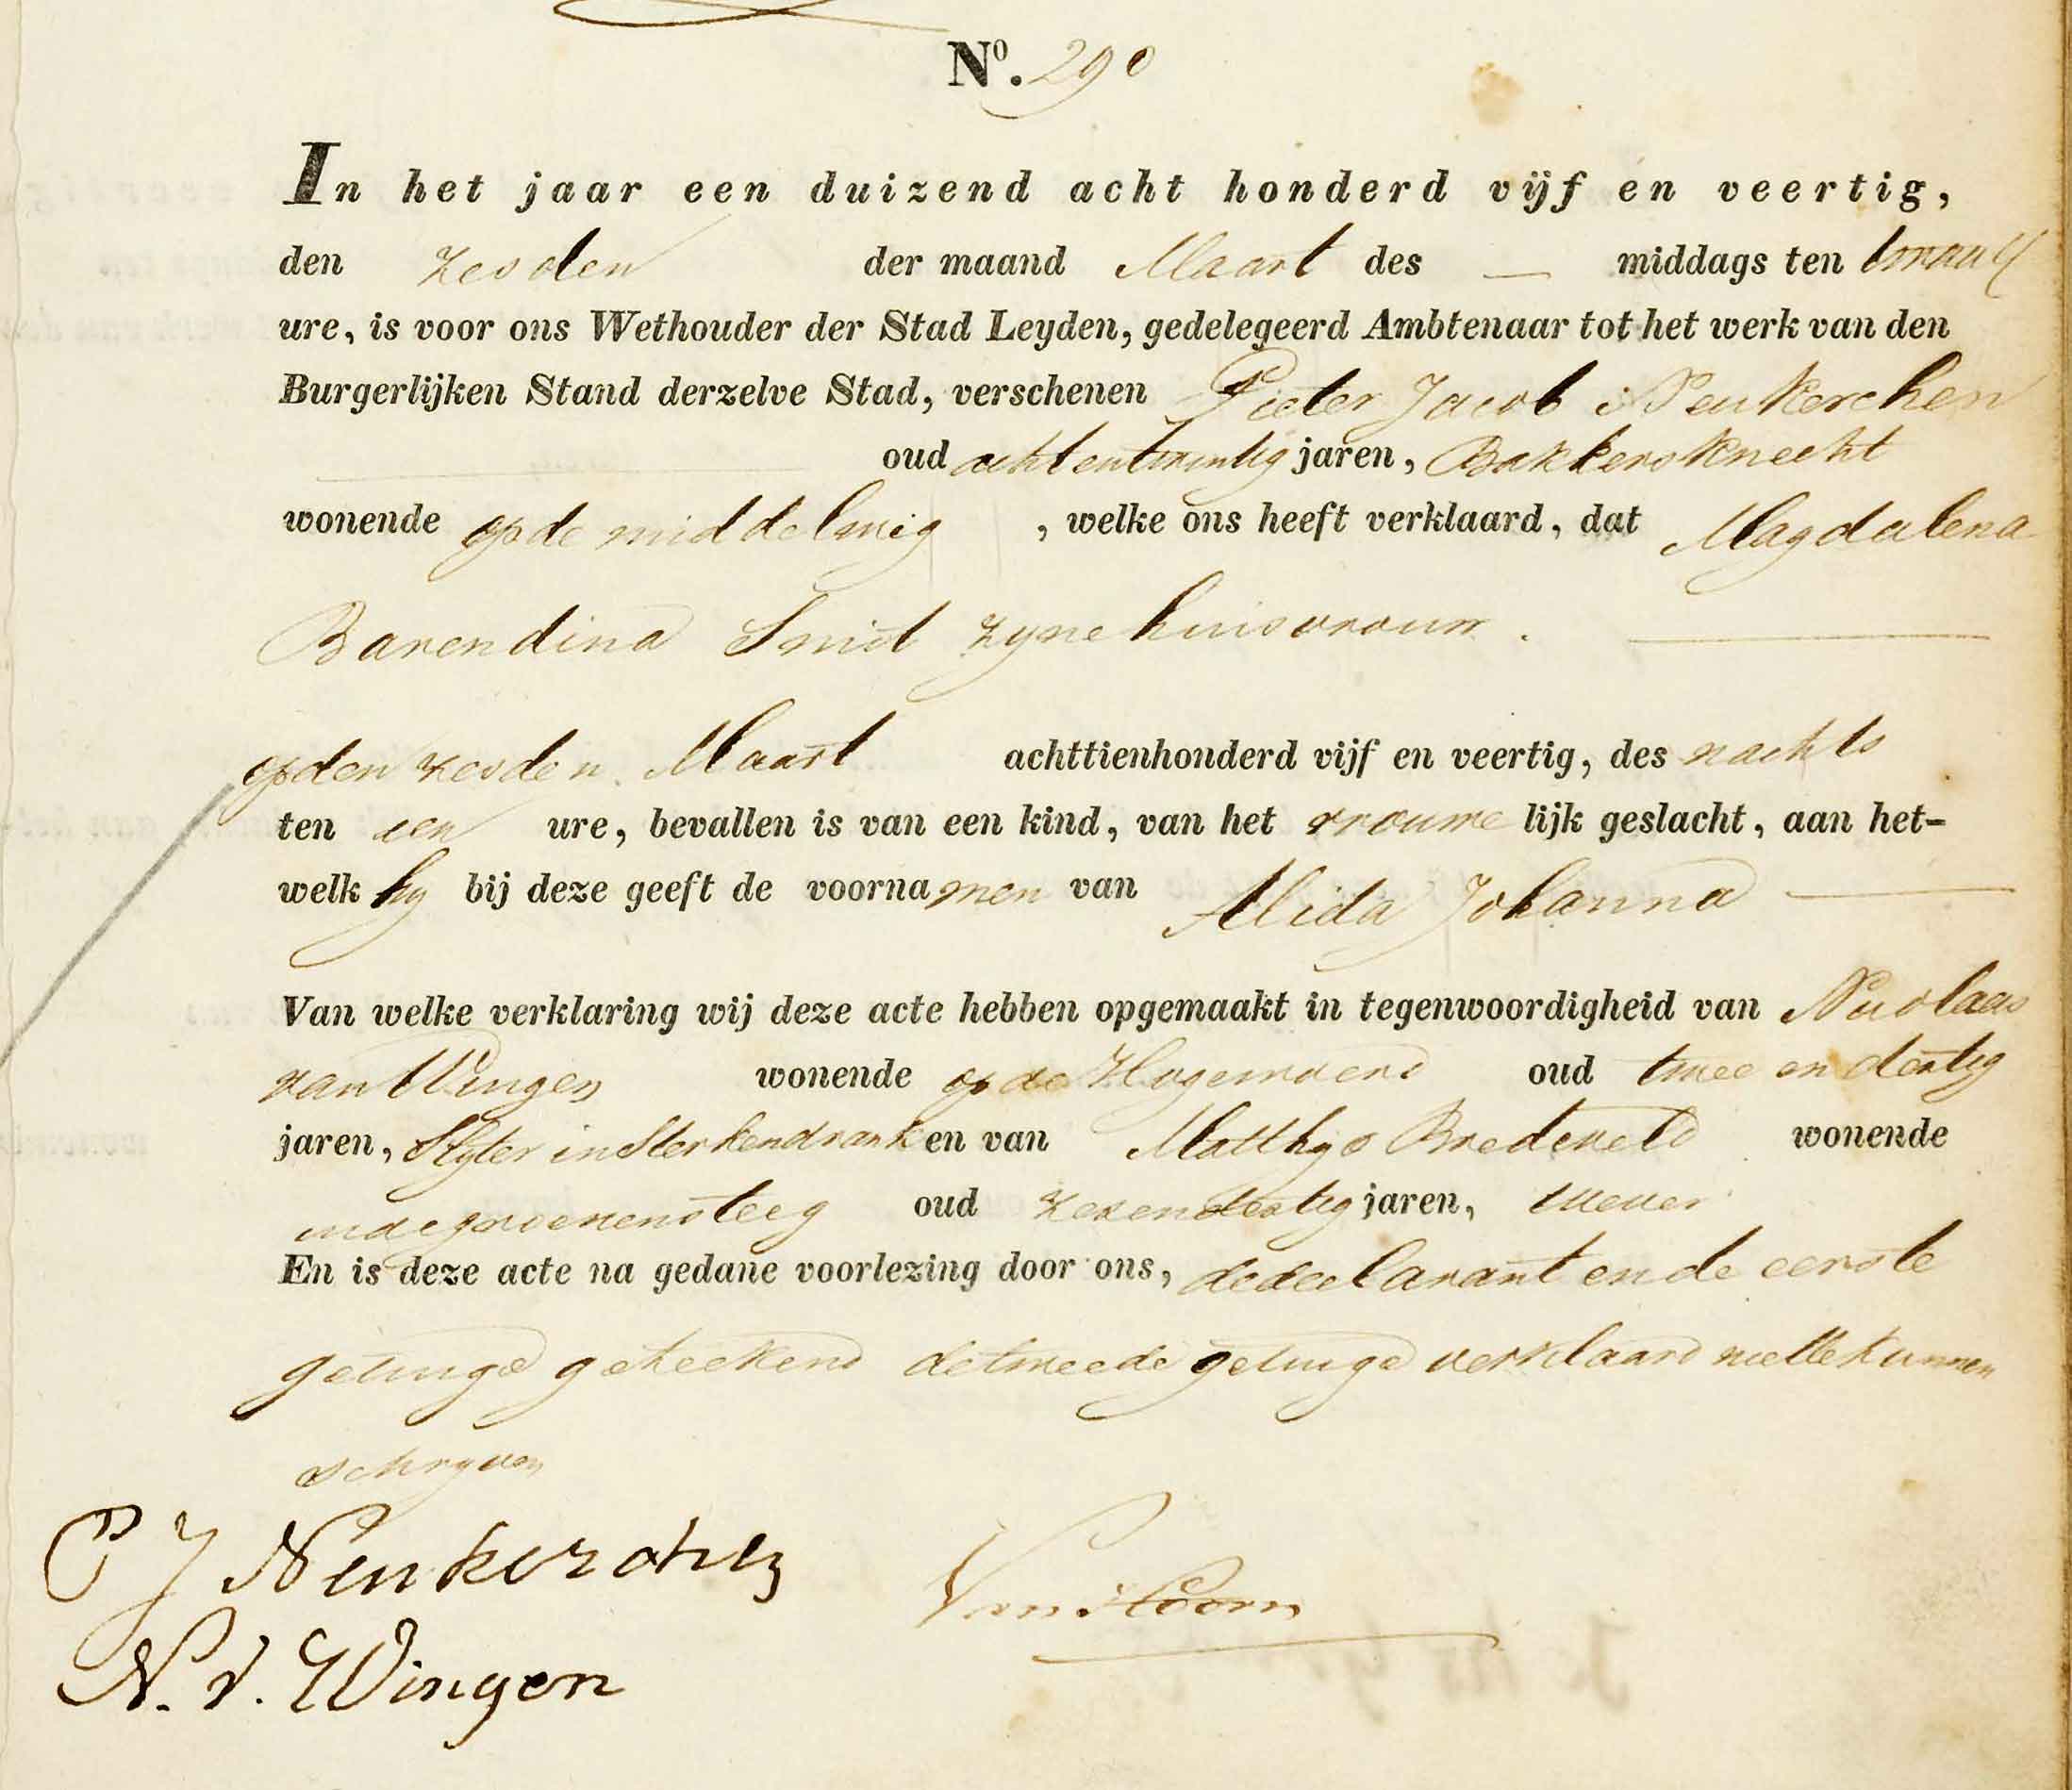 Nº. 290
In het jaar een duizend acht honderd vijf en veertig,
den zesden der maand Maart des — middags ten twaalf
ure, is voor ons Wethouder der Stad Leyden, gedelegeerd Ambtenaar tot het werk van den
Burgerlijken Stand derzelve Stad, verschenen Pieter Jacob Neukerchen
oud achtentwintig jaren, Bakkersknecht
wonende op de middelweg , welke ons heeft verklaard, dat Magdalena
Barendina Smit zyne huisvrouw .
op den zesden Maart achttienhonderd vijf en veertig, des nachts
ten een ure, bevallen is van een kind, van het vrouwelijk geslacht, aan het-
welk hy bij deze geeft de voornamen van Alida Johanna
Van welke verklaring wij deze acte hebben opgemaakt in tegenwoordigheid van Nicolaas
van Wingen wonende op de Hogewoerd oud twee en dertig
jaren, Slyter in Sterkendrank en van Matthys Bredeveld wonende
in de groenensteeg oud zesendertig jaren, wever
En is deze acte na gedane voorlezing door ons, de declarant en de eerste
getuige geteekend de tweede getuige verklaard niet te kunnen
schryven
P J Neukerchen
Van Hoorn
N. v. Wingen